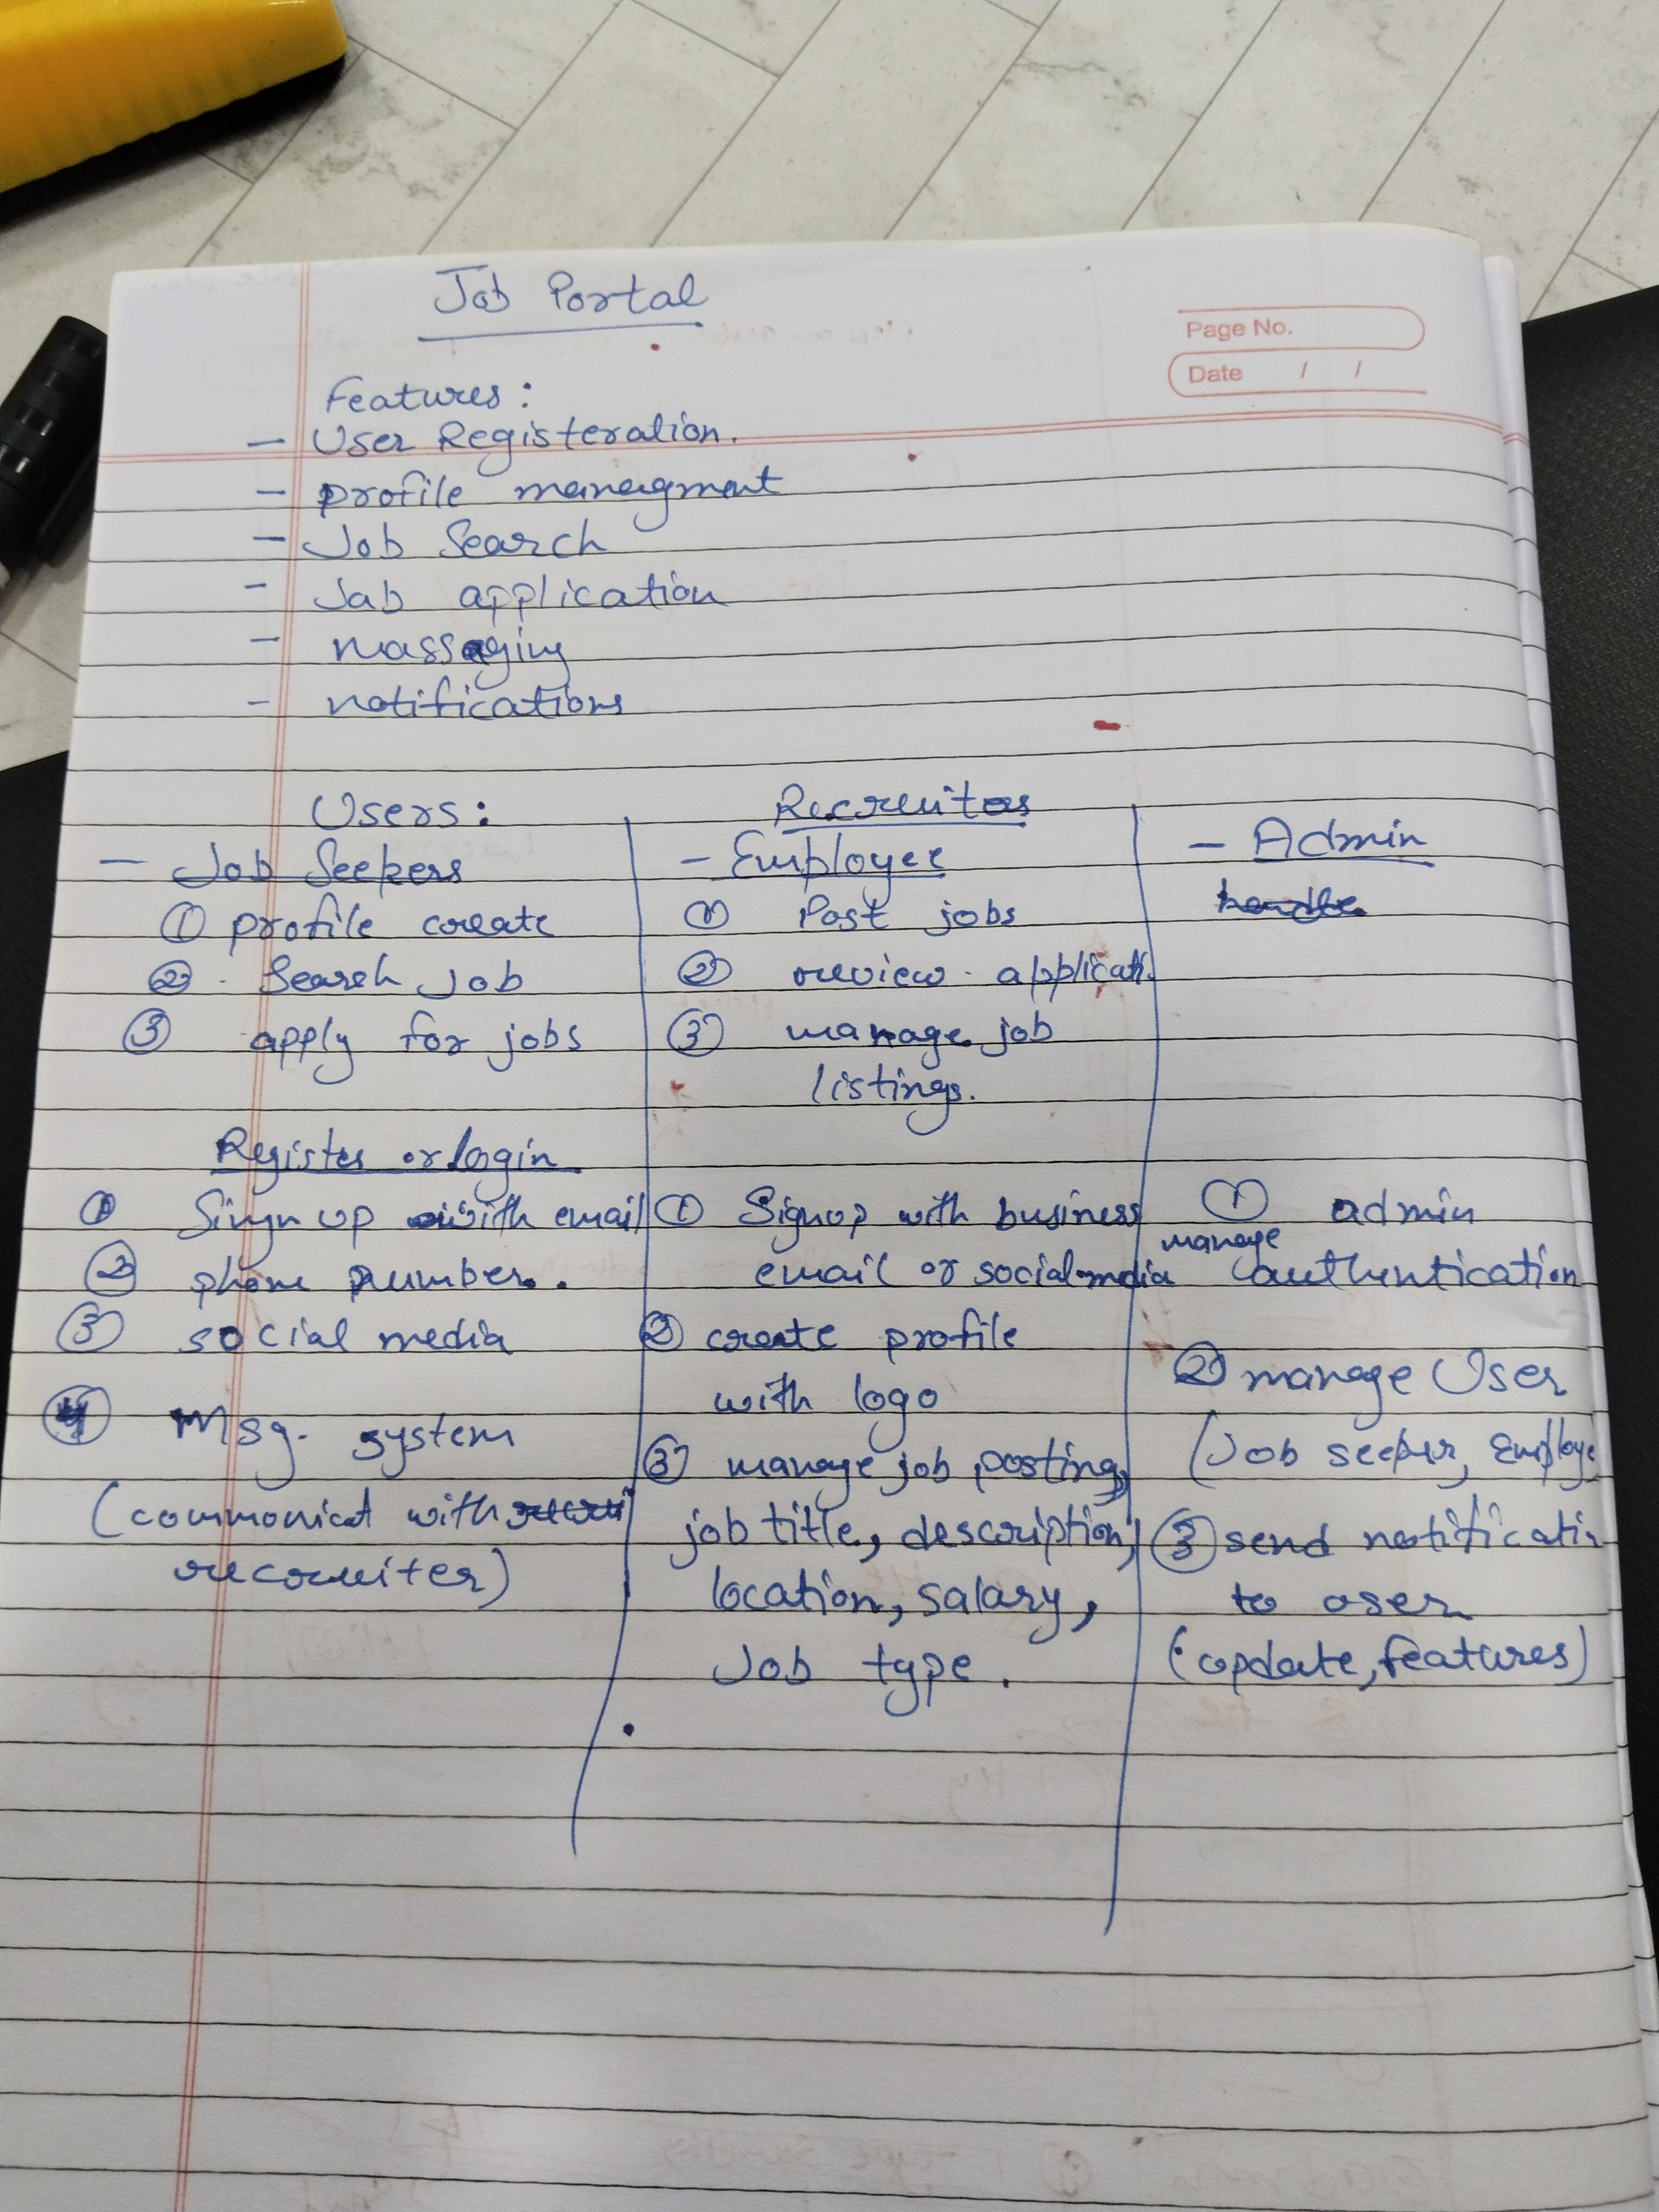 Job Portal
Page No.
Date / /
Features:
- User Registeration.
- profile managment
- Job Search
- Jab application
- massaging
- notifications
Users:
- Job Seekers
① profile create
② Search Job
③ apply for jobs
Register or login
① Singn up with email
② phone number.
③ social media
④ Msg. system
(communicat with
recruiter)
Recruitors
- Employee
① Post jobs
② review applicati.
③ manage job
listings.
① Signup with business
email or social media
② create profile
with logo
③ manage job posting,
job title, description,
location, salary,
Job type.
- Admin
① admin
manage authentication
② manage User
(Job seeker, Employe
③ send notificatio
to user
(update, features)